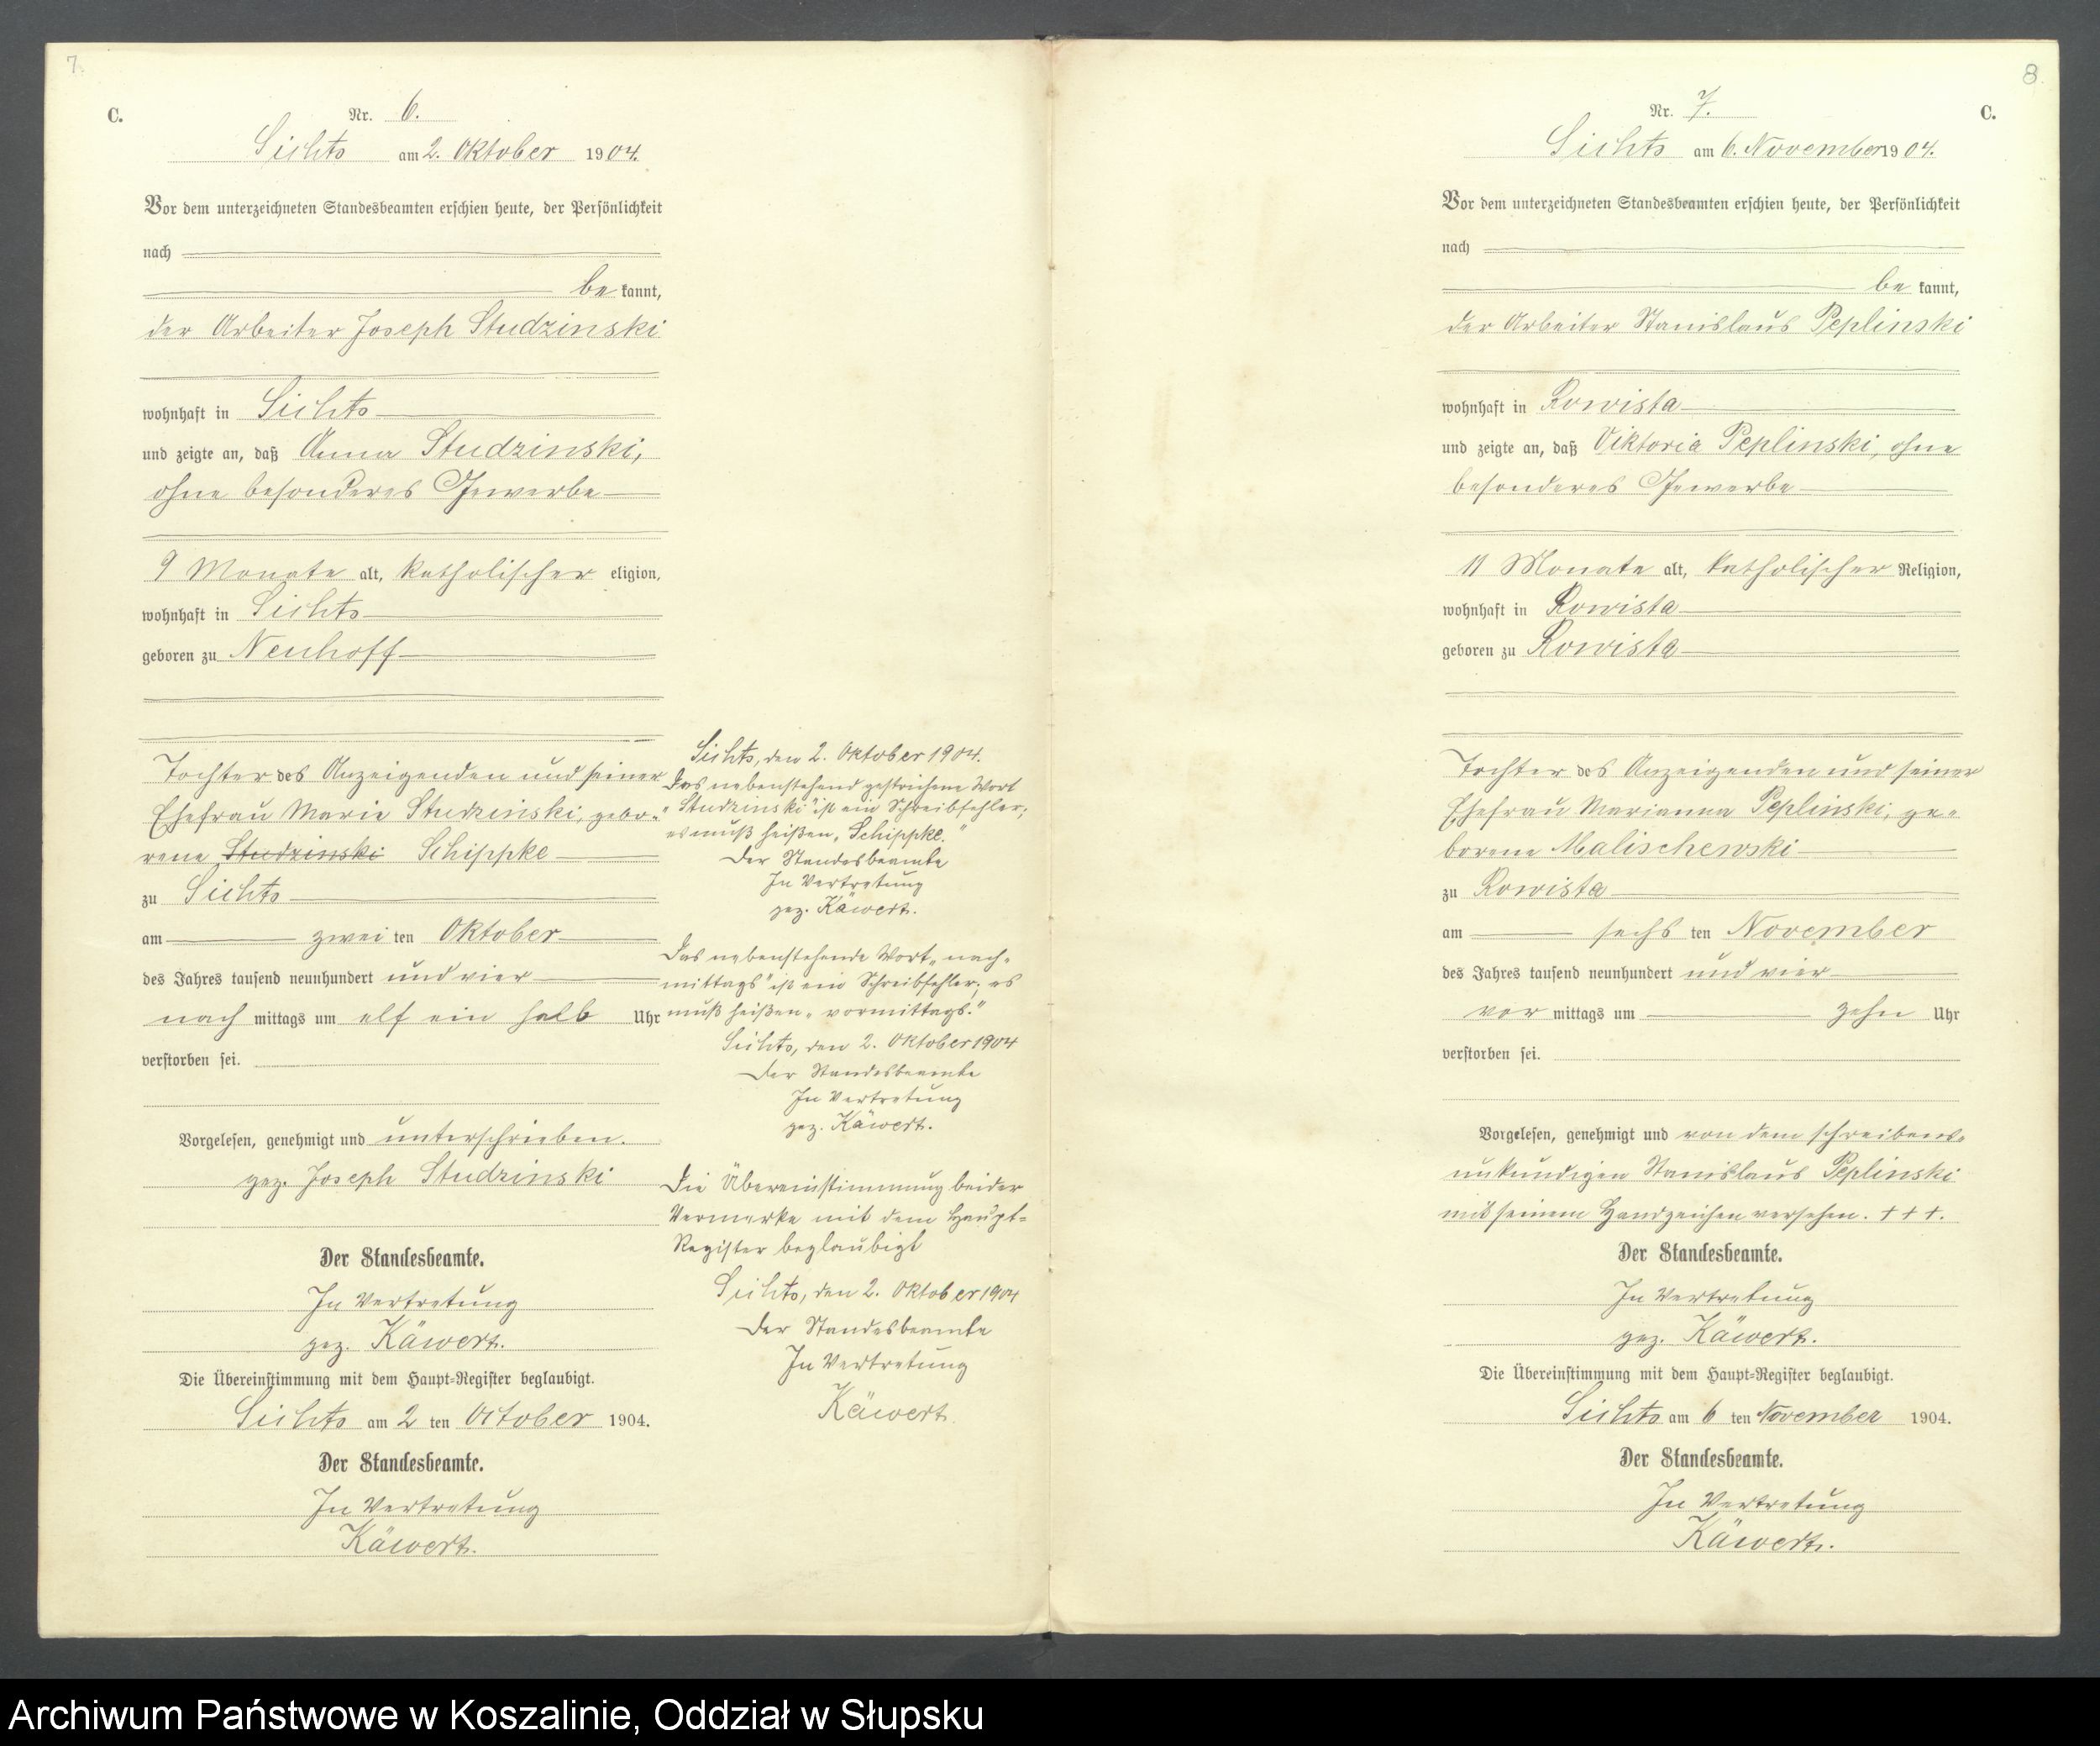 7.
C.
Nr. 6.
Sichts am 2. Oktober 1904.
Vor dem unterzeichneten Standesbeamten erschien heute, der Persönlichkeit
nach
be kannt,
der Arbeiter Joseph Studzinski
wohnhaft in Sichts
und zeigte an, daß Anna Studzinski,
ohne besonderes Gewerbe
9 Monate alt, katholischer eligion,
wohnhaft in Sichts
geboren zu Neuhoff
Tochter des Anzeigenden und seiner
Ehefrau Marie Studzinski, gebo-
rene Studzinski Schippke
zu Sichts
am zwei ten Oktober
des Jahres tausend neunhundert und vier
nach mittags um elf ein halb Uhr
verstorben sei.
Vorgelesen, genehmigt und unterschrieben.
gez. Joseph Studzinski
Der Standesbeamte.
In Vertretung
gez. Käwert.
Die Übereinstimmung mit dem Haupt-Register beglaubigt.
Sichts am 2 ten October 1904.
Der Standesbeamte.
In Vertretung
Käwert.
Sichts, den 2. Oktober 1904.
Das nebenstehend gestrichene Wort
"Studzinski" ist ein Schreibfehler;
es muß heißen "Schippke."
Der Standesbeamte
In Vertretung
gez. Käwert.
Das nebenstehende Wort "nach-
mittags" ist ein Schreibfehler; es
muß heißen "vormittags."
Sichts, den 2. Oktober 1904
Der Standesbeamte
In Vertretung
gez. Käwert.
Die Übereinstimmung beider
Vermerke mit dem Haupt-
Register beglaubigt
Sichts, den 2. Oktober 1904
Der Standesbeamte
In Vertretung
Käwert.
8.
Nr. 7.
C.
Sichts am 6. November 1904.
Vor dem unterzeichneten Standesbeamten erschien heute, der Persönlichkeit
nach
be kannt,
der Arbeiter Stanislaus Peplinski
wohnhaft in Rowista
und zeigte an, daß Viktoria Peplinski, ohne
besonderes Gewerbe
11 Monate alt, katholischer Religion,
wohnhaft in Rowista
geboren zu Rowista
Tochter des Anzeigenden und seiner
Ehefrau Marianna Peplinski, ge-
borene Malischewski
zu Rowista
am sechs ten November
des Jahres tausend neunhundert und vier
vor mittags um zehn Uhr
verstorben sei.
Vorgelesen, genehmigt und von dem schreibens-
unkundigen Stanislaus Peplinski
mit seinem Handzeichen versehen. + + +.
Der Standesbeamte.
In Vertretung
gez. Käwert.
Die Übereinstimmung mit dem Haupt-Register beglaubigt.
Sichts am 6 ten November 1904.
Der Standesbeamte.
In Vertretung
Käwert.
Archiwum Państwowe w Koszalinie, Oddział w Słupsku